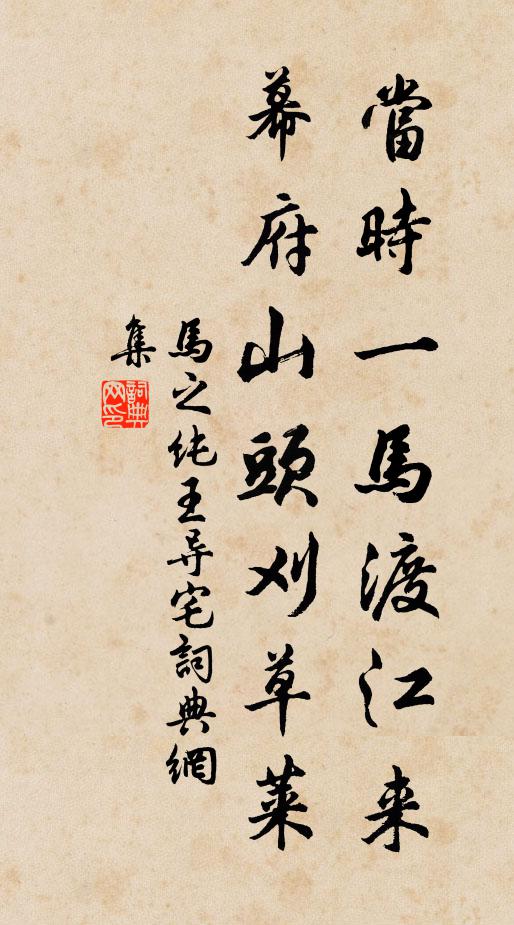 當時一馬渡江来
幕府山頭刈草萊
馬之纯王导宅詞典網
集
詞典
网印